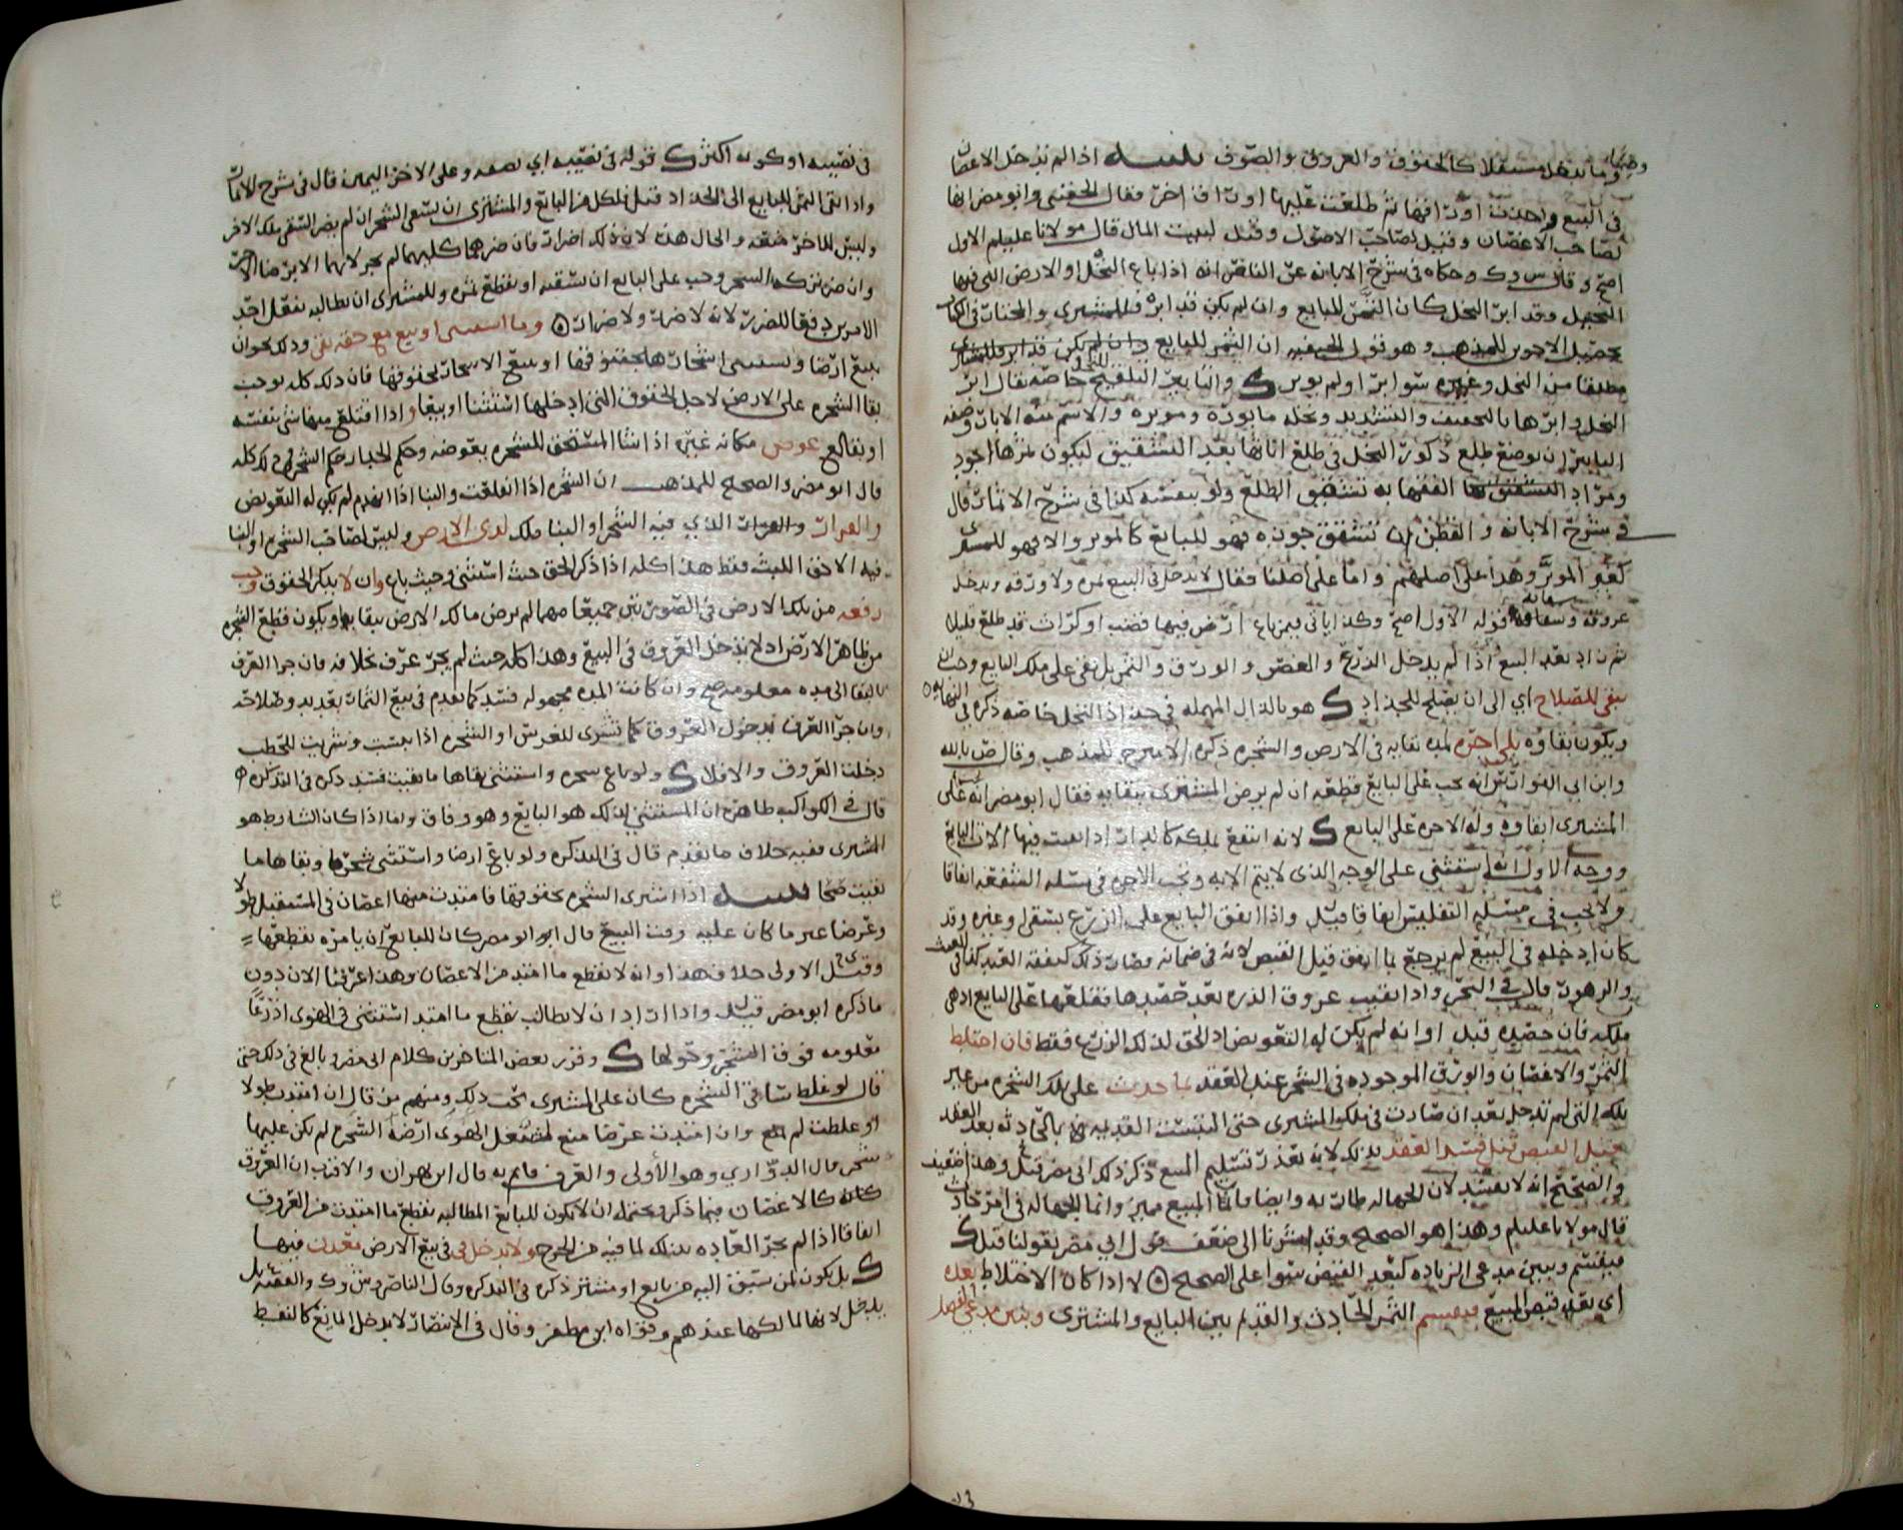 وما تدخل مستقلا كالحقوق والعروق والصوف تنبيه اذا لم تدخل الاغصان
في البيع واحدث اوراقها ثم طلعت عليها اوراق اخر فقال الحفني وابو مضر انها
لصاحب الاغصان وقيل لصاحب الاصول وقيل لبيت المال قال مولانا عليلم الاول
اصح وحكاه في شرح الابانه عن الناصر انه اذا باع النخل او الارض التي فيها
النخيل وقد ابر النخل كان الثمن للبايع وان لم يكن قد ابره فللمشتري
تحصيل الاخوين للمذهب وهو قول الحنفيه ان الثمر للبايع وان لم يكن قد ابر
مطلقا من النخل وغيره سوا ابر او لم يوبر والتابير التلقيح خاصه يقال ابر
النخل وابرها بالتخفيف والتشديد ونخله مابورة وموبره والاسم منه الابار وصفه
التابير ان يوضع طلع ذكور النخل في طلع اناثها بعد التشقيق ليكون ثمرها اجود
ومراد الفقها به تشقيق الطلع ولو بنفسه كذا في شرح الاثمار قال
في شرح الابانه والقطن ان تشقق جوزه فهو للبايع كالموبر والا فهو للمشتري
كغير الموبر وهذا على اصلهم واما على اصلنا فقال لا يدخل في البيع ثمره ولا ورقه ويدخل
عروقه وساقه قوله الاول اصح وكذا ياتي فيمن باع ارض فيها قضب او كراث قد طلع قليلا
ثم زاد بعد البيع اذا لم يدخل الزرع والغصن والورق والثمر بل بقي على ملك البايع وجب ان
يبقى للصلاح اي الى ان يصلح للجذاذ هو بالذال المهمله في جذاذ النخل خاصه ذكره في النهايه
ويكون بقاؤه بلا اجره لمده بقايه في الارض والشجره ذكره للمذهب وقال ض بالله
وابن ابي الفوارس انه يجب على البايع قطعه ان لم يرض المشتري ببقايه فقال ابو مضر انه على
المشتري ابقاوه وله الاجره على البايع لانه انتفع بملكه كالدار اذا بقيت فيها الات البايع
ووجه الاول انه استثني على الوجه الذي لا يتم الا به وتجب الاجره في مسئله الشفعه اتفاقا
ولا تجب في مسئله التفليس اتفاقا قيل واذا انفق البايع على الزرع بسقي او غيره وقد
كان ادخله في البيع لم يرجع بما انفق قبل القبض لانه في ضمانه وصار ذلك كنفقه العبد كذا في الغيث
والزهور قال في البحر واذا بقيت عروق الذره بعد حصدها فقلعها على البايع اذ هي
ملكه فان حصده قبل اوانه لم يكن له التعويض اذ الحق لذلك الزرع فقط فان اختلط
الثمر والاغصان والورق الموجوده في الشجر عند العقد بما حدث على ملك الشجره من غير
تلك التي لم تدخل بعد ان صارت في ملك المشتري حتى التبست القديمه بالحادثه بعد العقد
قبل القبض قيل فسد العقد بذلك لانه تعذر تسليم المبيع ذكر ذلك ابي مضر قيل وهذا ضعيف
والصحيح انه لا يفسد لان الجهاله طاريه وايضا فانما المبيع مميز وانما الجهاله في امر حادث
قال مولانا عليلم وهذا هو الصحيح وقد اشرنا الى ضعف قول ابي مضر بقولنا قيل
فيقسم ويبين مدعي الزياده كبعد القبض سوا على الصحيح لا اذا كان الاختلاط بعده
اي بعد قبض المبيع فيقسم الثمر الحادث والقديم بين البايع والمشتري ويبين مدعي الفضل
في نصيبه او كونه اكثر قوله في نصيبه اي نصفه وعلى الاخر اليمين قال في شرح الاثمار
واذا بقي الثمر للبايع الى الجذاذ قيل فلكل من البايع والمشتري ان يسقي الشجر ان لم يضر السقي بملك الاخر
وليس للاخر منعه والحال هذه لان ذلك اضرار فان ضرهما كليهما لم يجز لايهما الا برضا الاخر
وان ضر تركه الشجر وجب على البايع ان يسقيه او يقطع ثمره وللمشتري ان يطالبه بفعل احد
الامرين دفعا للضرر لانه لا ضرر ولا ضرار وما استثنى او بيع مع حقه بقي وذلك نحو ان
يبيع ارضا ويستثني اشجارها بحقوقها او يبيع الاشجار بحقوقها فان ذلك كله يوجب
بقا الشجره على الارض لاجل الحقوق التي ادخلها استثنا او بيعا واذا اقتلع منها شي بنفسه
او بقالع عوض مكانه غيره اذا شا المستحق للشجره بعوضه وحكم الخيار حكم الشجر في ذلك كله
قال ابو مضر والصحيح للمذهب ان الشجره اذا انقلعت والبنا اذا انهدم لم يكن له التعويض
والقرار والقرار الذي فيه الشجر او البنا ملك لذي الارض وليس لصاحب الشجره او البنا
فيه الا حق اللبث فقط هذا كله اذا ذكر الحق حيث استثنى وحيث باع وان لا يذكر الحقوق وجب
رفعه من تلك الارض في الصورتين جميعا مهما لم يرض مالك الارض ببقايه ويكون قطع الشجره
من ظاهر الارض اذ لا تدخل العروق في البيع وهذا كله حيث لم يجر عرف بخلافه فان جرا العرف
بالبقا الى مده معلومه صح وان كانت المده مجهوله فسد كما تقدم في بيع الثمار بعد بدو صلاحه
وان جرا العرف بدخول العروق كما تشترى للغرس او الشجره اذا يبست وشريت للحطب
دخلت العروق والافلا ولو باع شجره واستثنى بقاها ما بقيت فسد ذكره في التذكره
قال في الكواكب ظاهره ان المستثني لذلك هو البايع وهو وفاق واما اذا كان الشارط هو
المشتري ففيه خلاف ما تقدم قال في التذكره ولو باع ارضا واستثنى شجرها وبقاها ما
بقيت صحا تنبيه اذا اشترى الشجره بحقوقها فامتدت منها اغصان في المستقبل طولا
وعرضا غير ما كان عليه وقت البيع قال ابو مضر كان للبايع ان يامره بقطعها
وقيل الاولى خلاف هذا وانه لا يقطع ما امتد من الاغصان وهذا عرفنا الان دون
ما ذكره ابو مضر قيل واذا اراد ان لا يطالب بقطع ما امتد استثنى في الهوى اذرعا
معلومه فوق الشجر وحولها وقرر بعض المتاخرين كلام ابي مضر وبالغ في ذلك حتى
قال لو غلط ساق الشجره كان على المشتري نحت ذلك ومنهم من قال ان امتدت طولا
او غلظت لم يمنع وان امتدت عرضا منع لشغل الهوى ارضه الشجره لم يكن عليها
شجر قال الدواري وهو الأولى والعرف قايم به قال ابن بهران والاقرب ان العروق
كانه كالاغصان فيما ذكر ويحتمل ان لا يكون للبايع المطالبه بقطع ما امتدت من العروق
اتفاقا اذا لم يجر العاده بذلك لما فيه من الحرج ولا يدخل في بيع الارض معدن فيها
بل يكون لمن سبق اليه من بايع او مشتر ذكره في التذكره وقال الناصر وش وك والفقيه ل
يدخل لانها لمالكها عندهم وقواه ابن مظفر وقال في الانتصار لا يدخل المايع كالنفط